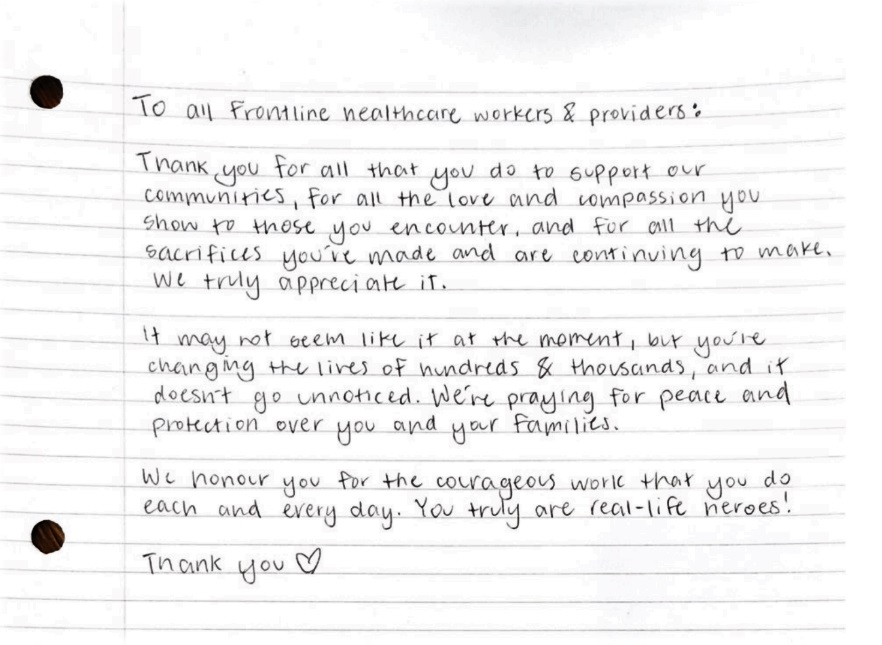 To all Frontline healthcare workers & providers:
Thank you for all that you do to support our
communities, for all the love and compassion you
show to those you encounter, and for all the
sacrifices you've made and are continuing to make.
We truly appreciate it.
It may not seem like it at the moment, but you're
changing the lives of hundreds & thousands, and it
doesn't go unnoticed. We're praying for peace and
protection over you and your families.
We honour you for the courageous work that you do
each and every day. You truly are real-life heroes!
Thank you ♡